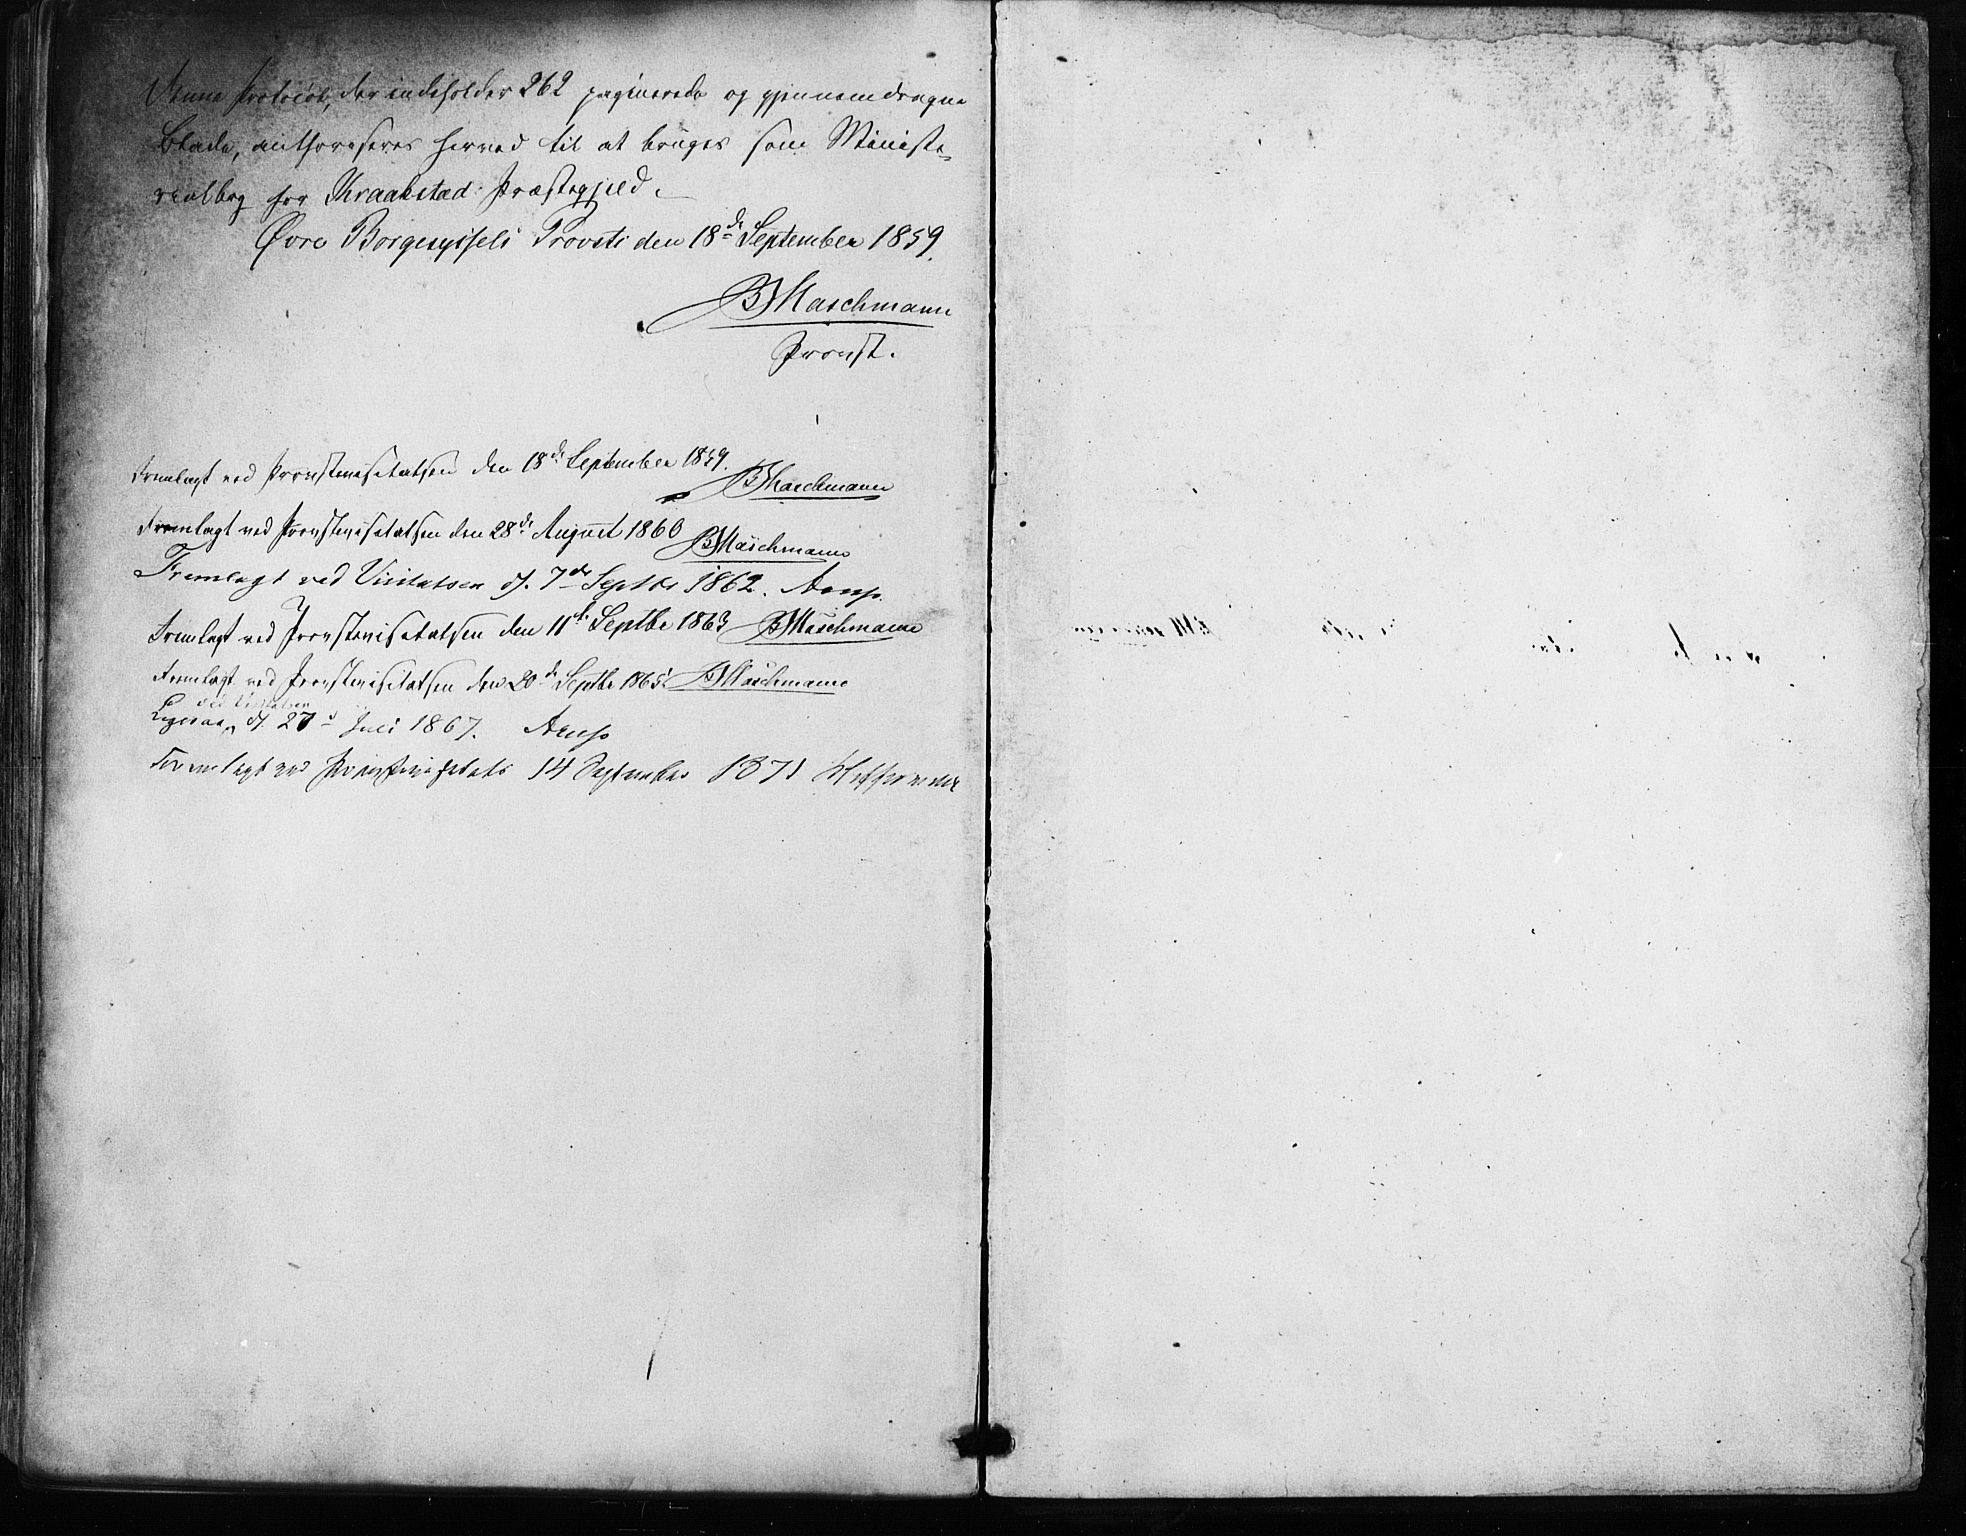 Denne Protocol, der indeholder 262 paginerede og gjennemdragne
Blade, authoriseres herved til at bruges som Ministe-
rialbog for Kraakstad Præstegjeld.
Øvre Borgesyssels Provsti den 18de September 1859.
B Maschmann
Provst.
Fremlagt ved Provstevisitatsen den 18de September 1859.
B Maschmann
Fremlagt ved Provstevisitatsen den 28de August 1860 B Maschmann
Fremlagt ved Visitatsen d. 7de Septbr 1862. Arup.
Fremlagt ved Provstevisitatsen den 11te Septbr 1863 B Maschmann
Fremlagt ved Provstevisitatsen den 20de Septbr 1865 B Maschmann
ved Visitatsen
Ligesaa d. 27d Juli 1867. Arup
Fremlagt ved Provstevisitats 14 September 1871